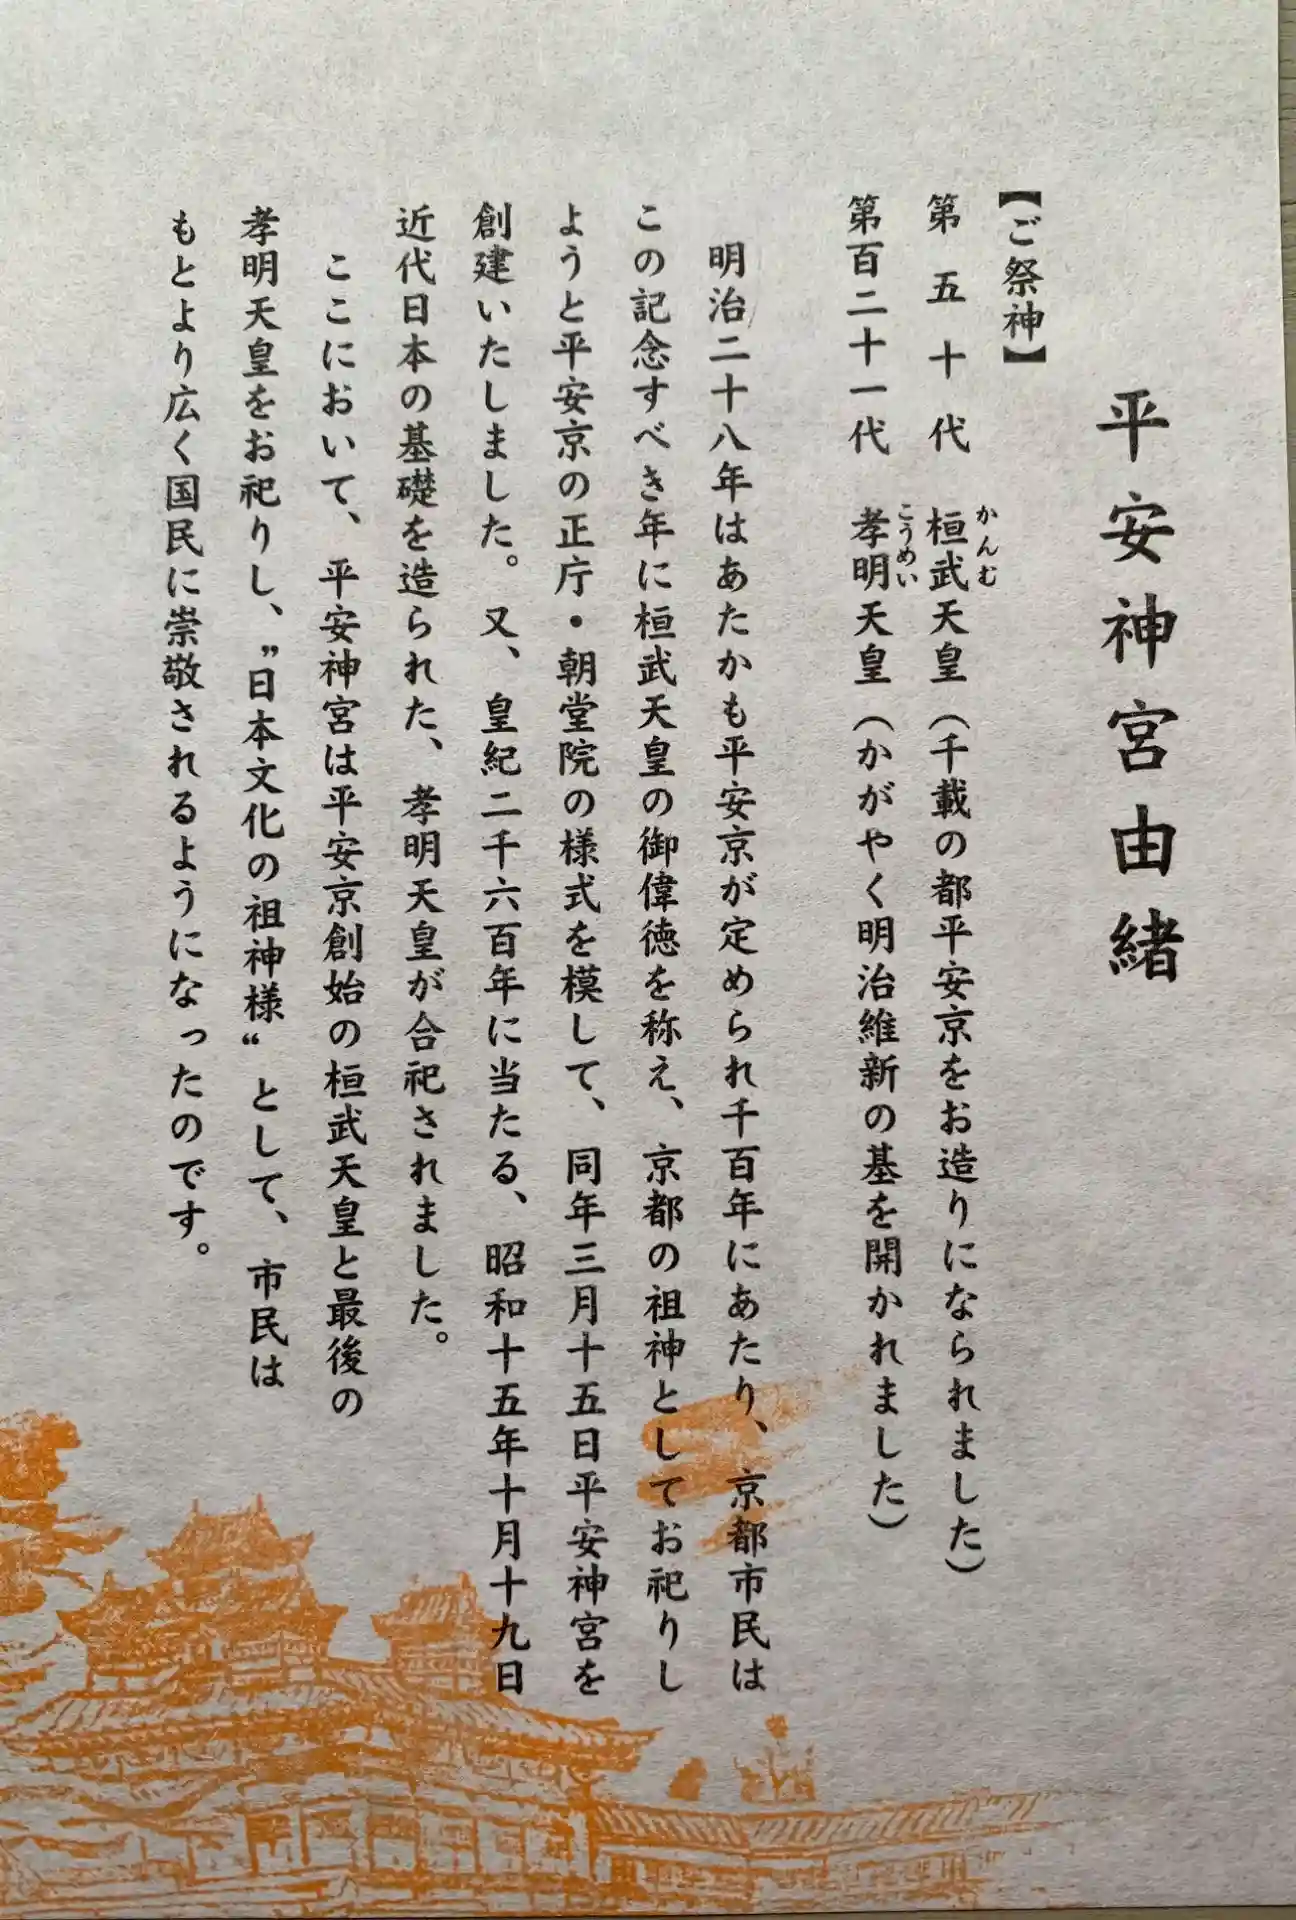 平安神宮由緒
【ご祭神】
第五十代　桓武天皇（千載の都平安京をお造りになられました）
かんむ
第百二十一代　孝明天皇（かがやく明治維新の基を開かれました）
こうめい
明治二十八年はあたかも平安京が定められ千百年にあたり、京都市民は
この記念すべき年に桓武天皇の御偉徳を称え、京都の祖神としてお祀りし
ようと平安京の正庁・朝堂院の様式を模して、同年三月十五日平安神宮を
創建いたしました。又、皇紀二千六百年に当たる、昭和十五年十月十九日
近代日本の基礎を造られた、孝明天皇が合祀されました。
ここにおいて、平安神宮は平安京創始の桓武天皇と最後の
孝明天皇をお祀りし、〝日本文化の祖神様〟として、市民は
もとより広く国民に崇敬されるようになったのです。